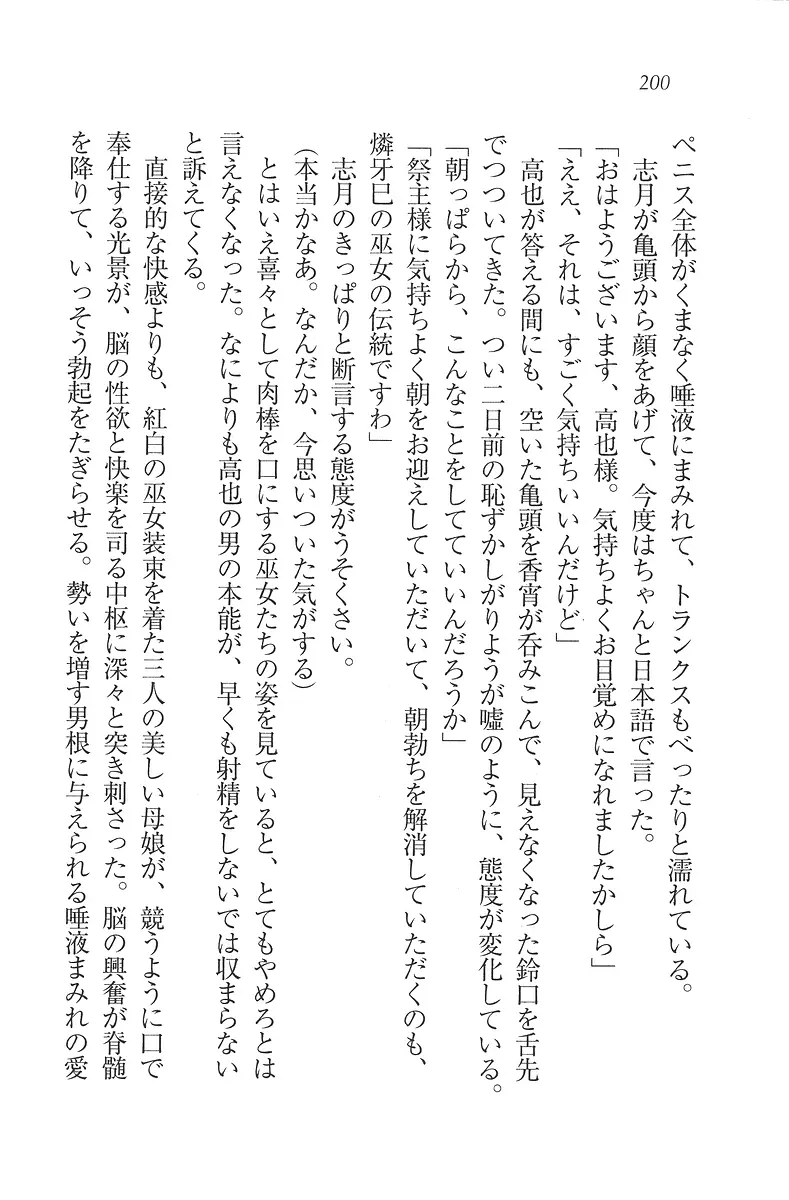 200
ペニス全体がくまなく唾液にまみれて、トランクスもべったりと濡れている。
志月が亀頭から顔をあげて、今度はちゃんと日本語で言った。
「おはようございます、高也様。気持ちよくお目覚めになれましたかしら」
「ええ、それは、すごく気持ちいいんだけど」
高也が答える間にも、空いた亀頭を香宵が呑みこんで、見えなくなった鈴口を舌先
でつついてきた。つい二日前の恥ずかしがりようが嘘のように、態度が変化している。
「朝っぱらから、こんなことをしてていいんだろうか」
「祭主様に気持ちよく朝をお迎えしていただいて、朝勃ちを解消していただくのも、
燐牙巳の巫女の伝統ですわ」
志月のきっぱりと断言する態度がうそくさい。
(本当かなあ。なんだか、今思いついた気がする)
とはいえ喜々として肉棒を口にする巫女たちの姿を見ていると、とてもやめろとは
言えなくなった。なによりも高也の男の本能が、早くも射精をしないでは収まらない
と訴えてくる。
直接的な快感よりも、紅白の巫女装束を着た三人の美しい母娘が、競うように口で
奉仕する光景が、脳の性欲と快楽を司る中枢に深々と突き刺さった。脳の興奮が脊髄
を降りて、いっそう勃起をたぎらせる。勢いを増す男根に与えられる唾液まみれの愛